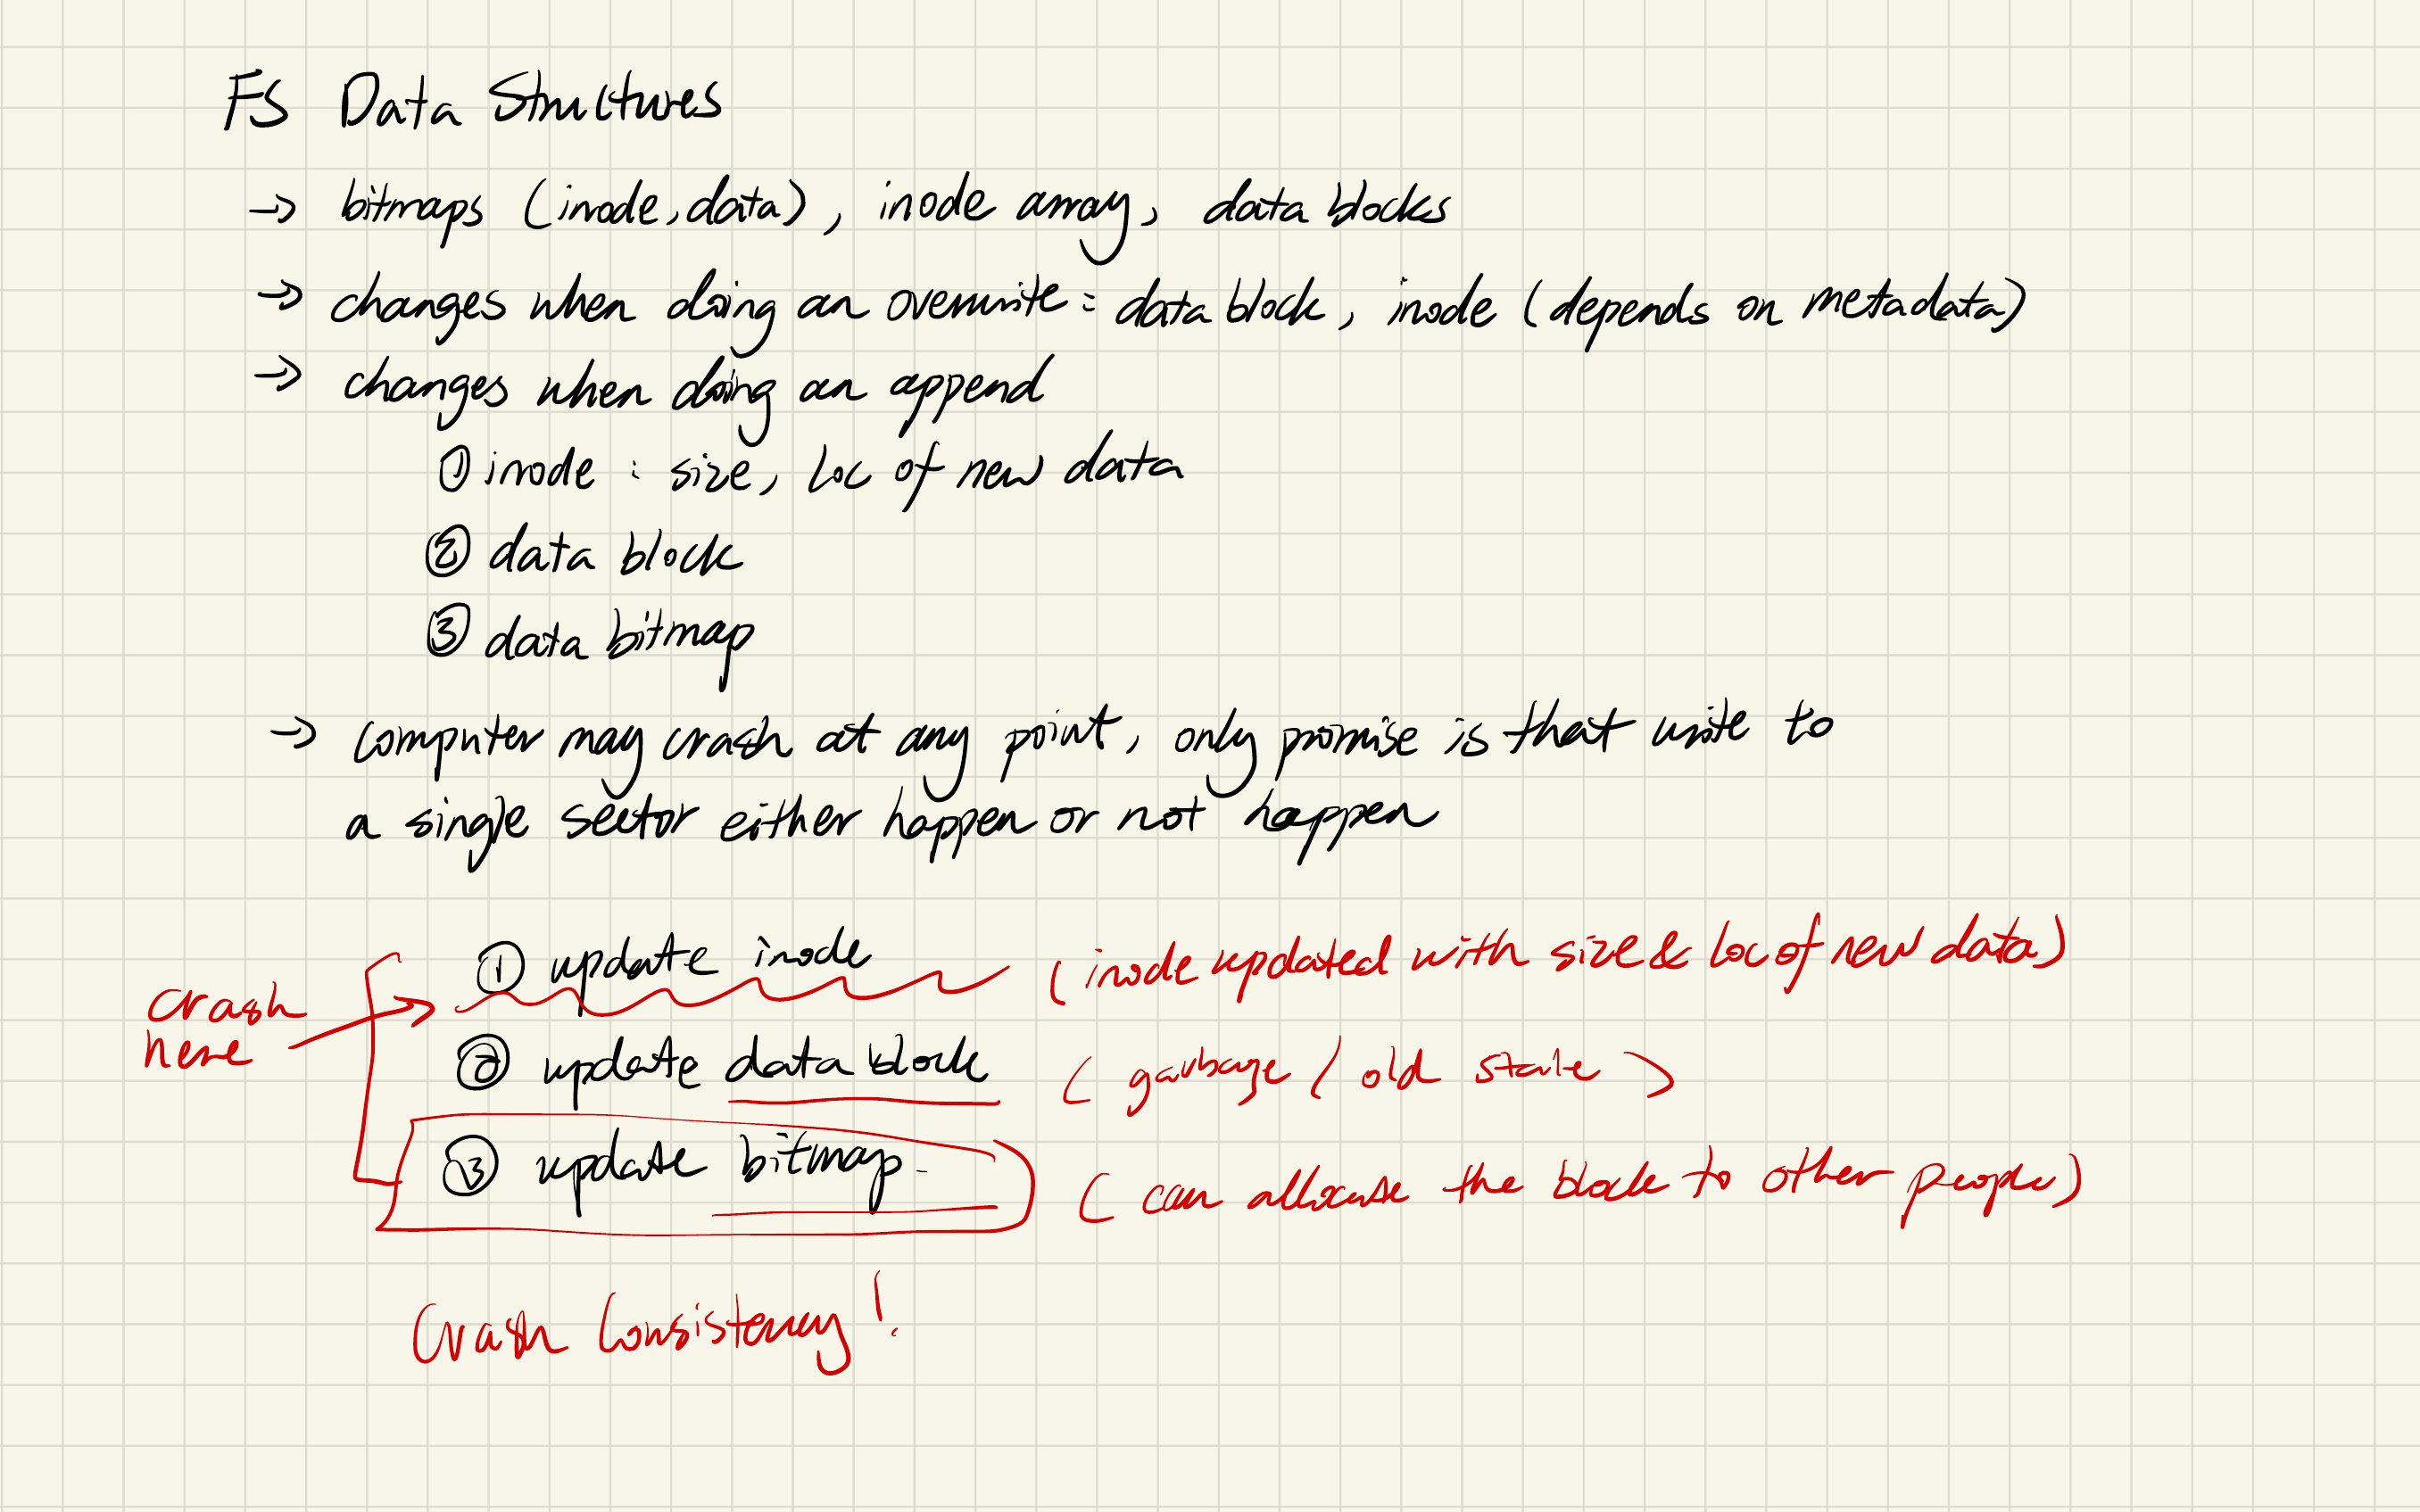 FS Data Structures
→ bitmaps (inode, data), inode array, data blocks
→ changes when doing an overwrite: data block, inode (depends on metadata)
→ changes when doing an append
① inode : size, loc of new data
② data block
③ data bitmap
→ computer may crash at any point, only promise is that write to
a single sector either happen or not happen
① update inode (inode updated with size & loc of new data)
crash here →
② update data block (garbage / old state)
③ update bitmap (can allocate the block to other people)
Crash Consistency!